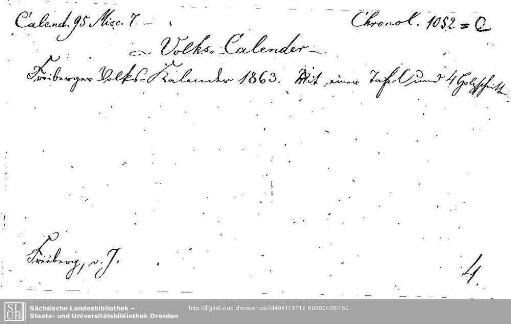 Calend. 95 Misc. 7 — Chronol. 1052 = C
Volks-Calender
Freiberger Volks-Kalender 1863. Mit einer Tafel und 4 Holzschnitten
Freiberg, o. J.
4.
SLUB
Sächsische Landesbibliothek –
Staats- und Universitätsbibliothek Dresden